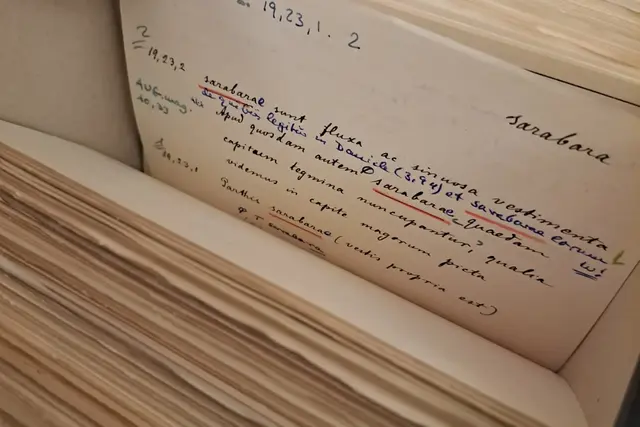 19,23,1. 2
sarabara
2
19,23,2 sarabarae sunt fluxa ac sinuosa vestimenta
de quibus legitur in Daniele (3,94) et sarabarae eorum
Aug. mag. 10,33
Apud quosdam autem sarabarae quaedam
capitum tegmina nuncupantur, qualia
videmus in capite magorum picta
19,23,1
Parthis sarabarae (vestis propria est)
sarabara